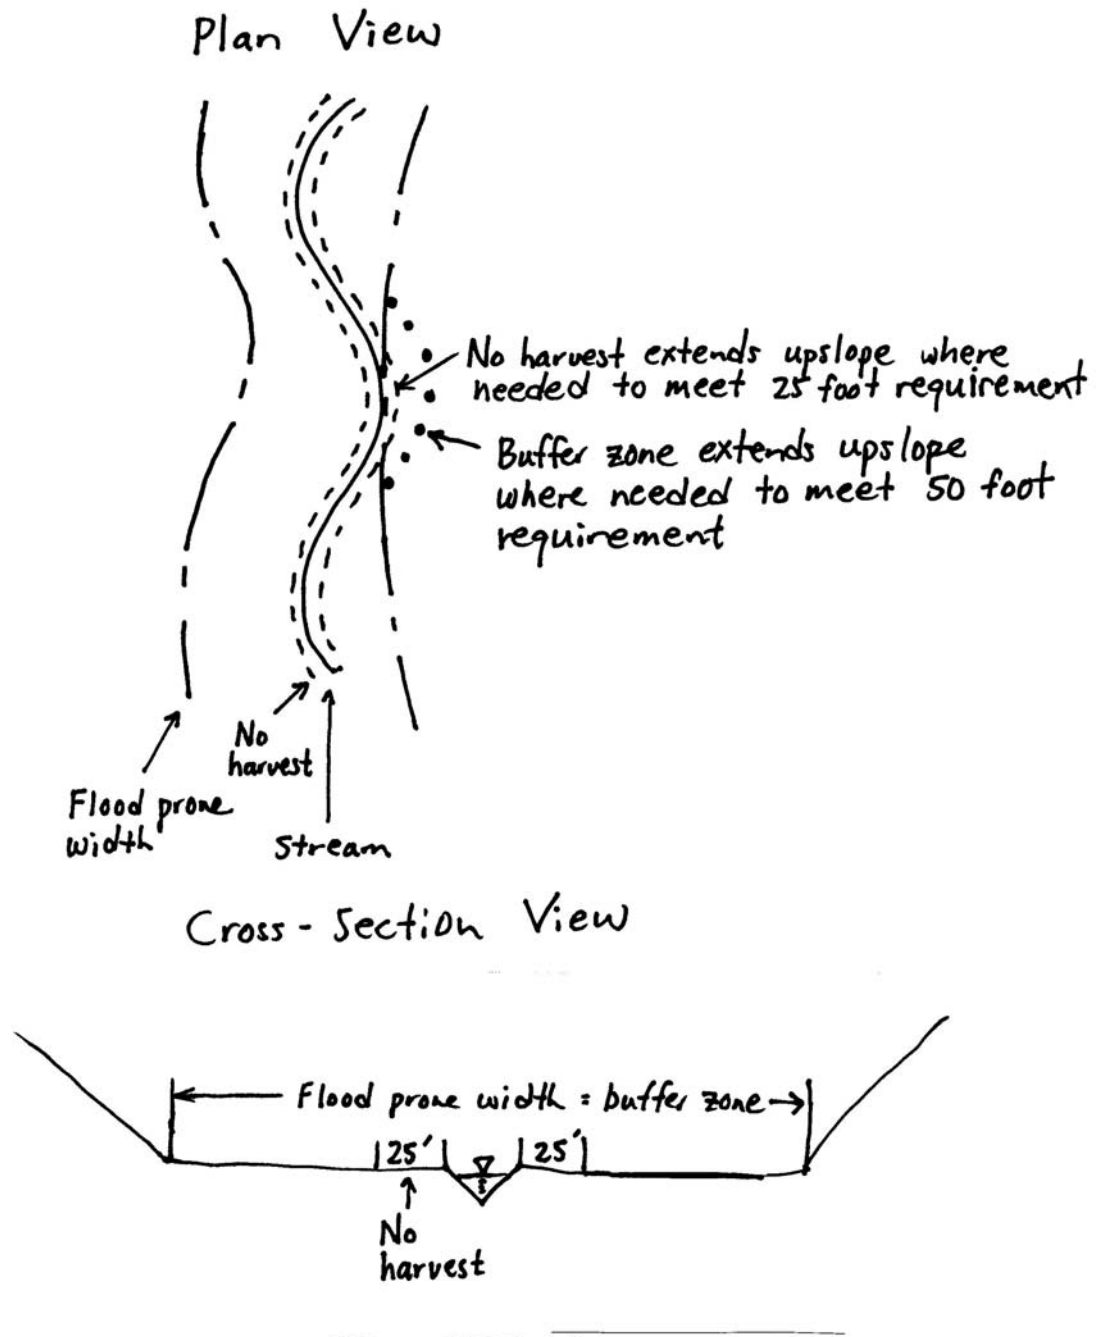 Plan View
No harvest extends upslope where
needed to meet 25 foot requirement
Buffer zone extends upslope
where needed to meet 50 foot
requirement
No
harvest
Flood prone
width
Stream
Cross-Section View
Flood prone width = buffer zone
25' 25'
No
harvest